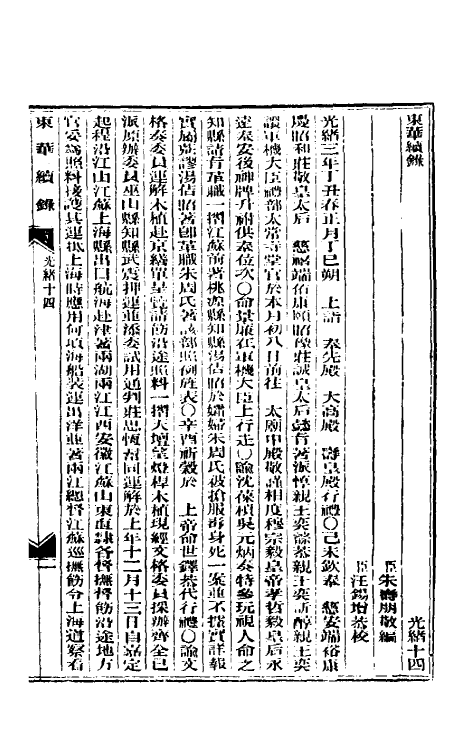 東華續錄
光緒十四
臣朱壽朋敬編
臣汪錫增恭校
光緒三年丁丑春正月丁巳朔　上詣　奉先殿　大高殿　壽皇殿行禮〇己未欽奉　慈安端裕康
慶昭和莊敬皇太后　慈禧端佑康頤昭豫莊誠皇太后懿旨著派惇親王奕誴恭親王奕訢醇親王奕
譞軍機大臣禮部太常寺堂官於本月初八日前往　太廟中殿敬謹相度穆宗毅皇帝孝哲毅皇后永
遠奉安後神牌升祔供奉位次〇命景廉在軍機大臣上行走〇諭沈葆楨吳元炳奏特參玩視人命之
知縣請旨革職一摺江蘇前署桃源縣知縣湯佔昭於孀婦朱周氏被搶服毒身死一案並不據實詳報
實屬荒謬湯佔昭著卽革職朱周氏著該部照例旌表〇辛酉祈穀於　上帝命世鐸恭代行禮〇諭文
格奏委員運解木植赴京繕單呈覽請飭沿途照料一摺天壇望燈桿木植現經文格委員採辦齊全已
派原辦委員巫山縣知縣武震押運並添委試用通判莊思恆幫同運解於上年十二月十三日自嘉定
起程沿江由江蘇上海縣出口航海赴津著兩湖兩江江西安徽江蘇山東直隸各督撫督飭沿途地方
官妥爲照料接護其運抵上海時應用何項海船裝運出洋並著兩江總督江蘇巡撫飭令上海道察看
東華續錄
光緒十四